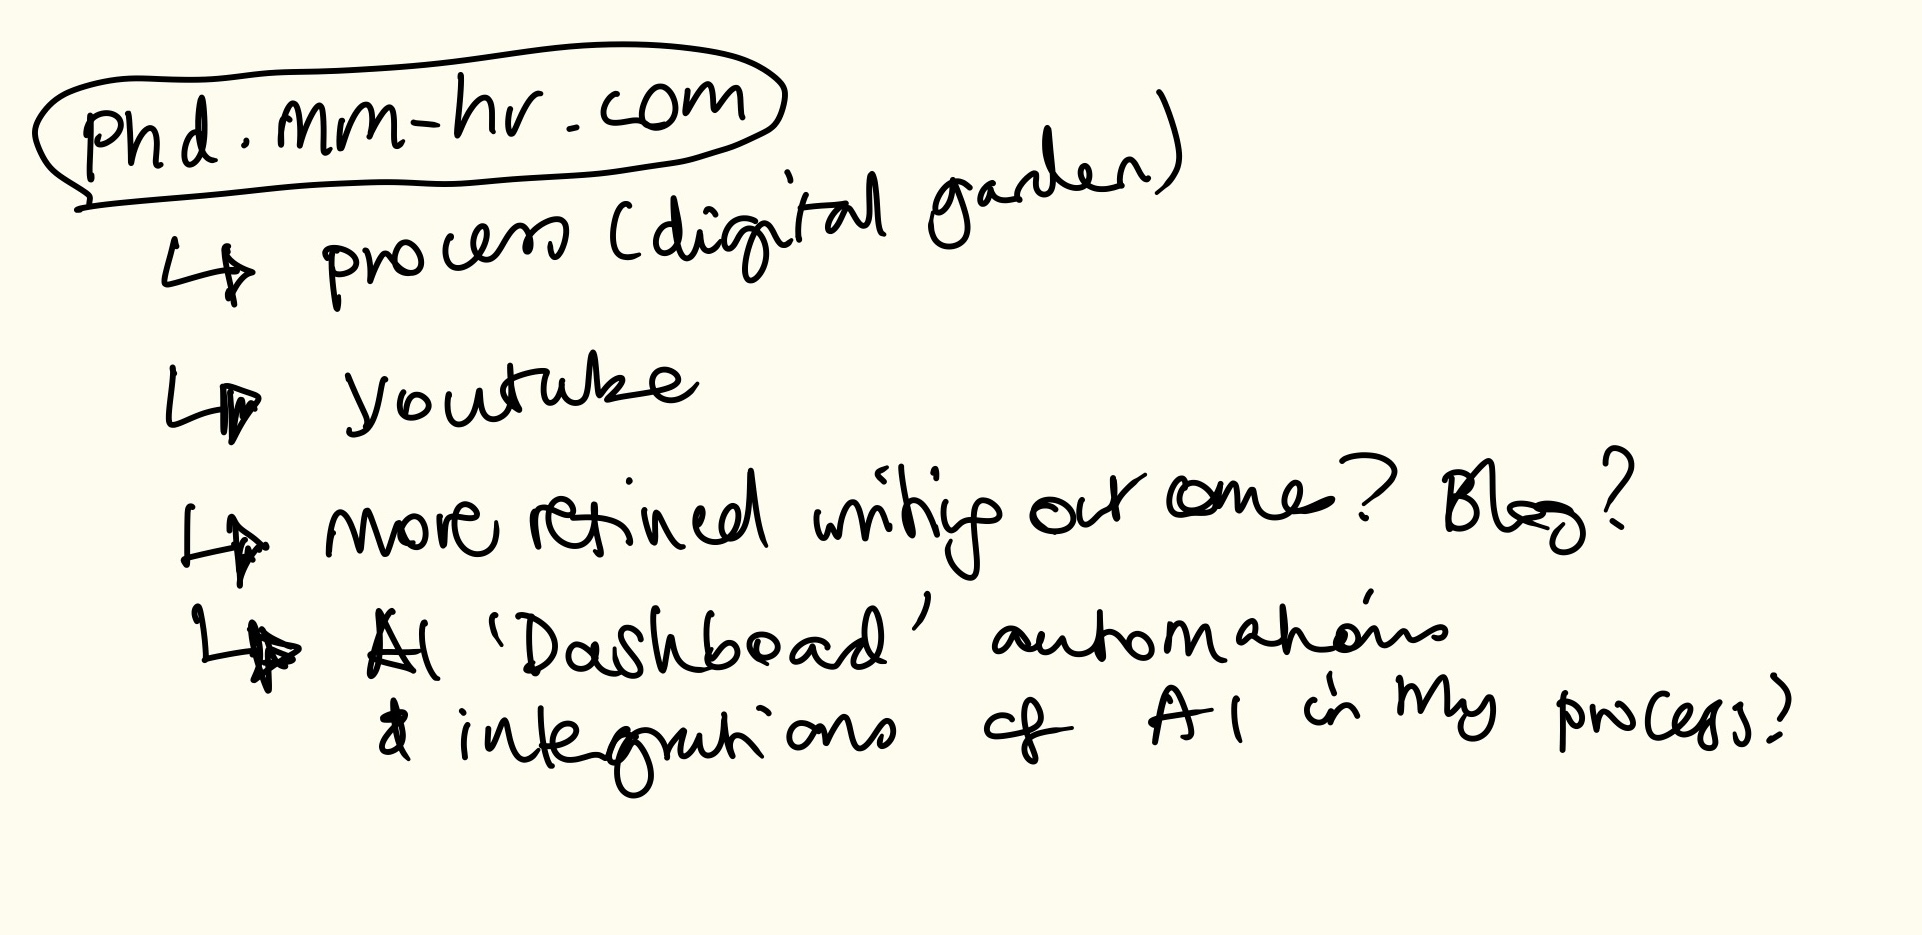 phd.mm-hr.com
↳ process (digital garden)
↳ youtube
↳ more refined writing outcome? Blog?
↳ AI 'Dashboad' automations
& integrations of AI in my process?